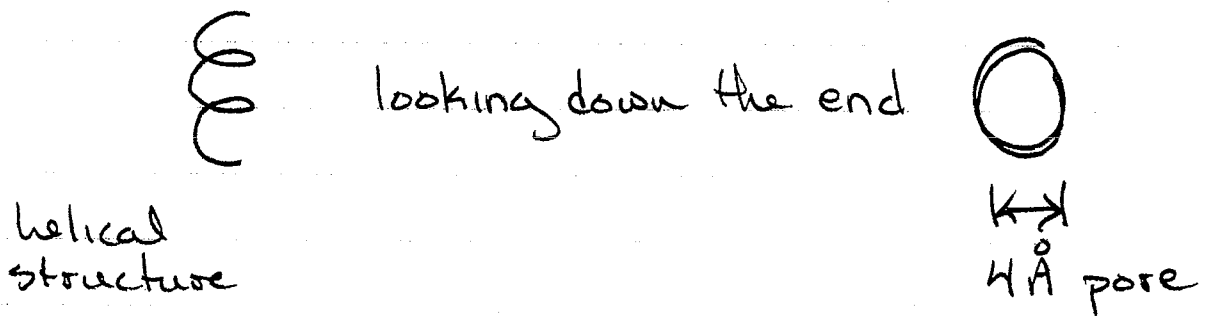 looking down the end
helical
structure
4 Å pore